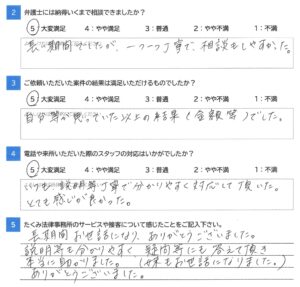 2 弁護士には納得いくまで相談できましたか？
5：大変満足 4：やや満足 3：普通 2：やや不満 1：不満
長い期間でしたが、一つ一つ丁寧で、相談もしやすかった。
3 ご依頼いただいた案件の結果は満足いただけるものでしたか？
5：大変満足 4：やや満足 3：普通 2：やや不満 1：不満
自分達が思っていた以上の結果（金額等）でした。
4 電話や来所いただいた際のスタッフの対応はいかがでしたか？
5：大変満足 4：やや満足 3：普通 2：やや不満 1：不満
いつも説明等丁寧で分かりやすく対応して頂いた。
とても感じが良かった。
5 たくみ法律事務所のサービスや接客について感じたことをご記入下さい。
長期間お世話になり、ありがとうございました。
説明等も分かりやすく 疑問等にも答えて頂き
本当に助かりました。（お世話になりました。）
ありがとうございました。